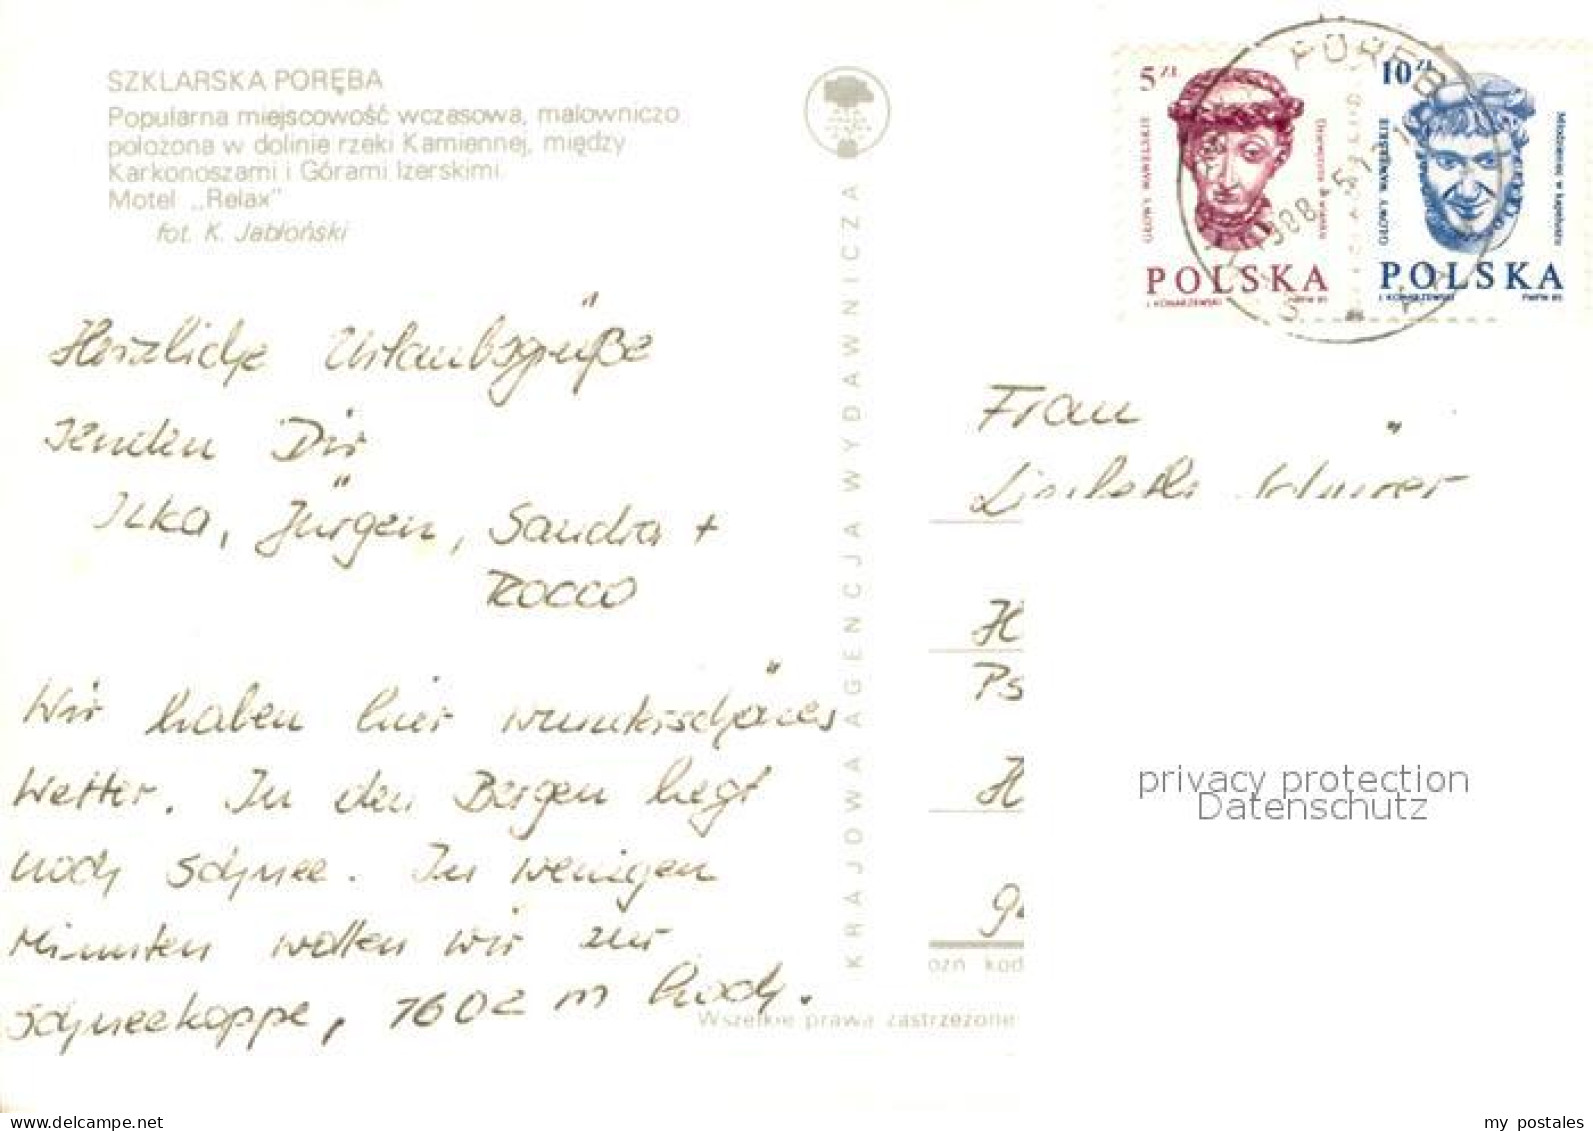 SZKLARSKA PORĘBA
Popularna miejscowość wczasowa, malowniczo
położona w dolinie rzeki Kamiennej, między
Karkonoszami i Górami Izerskimi.
Motel „Relax"
fot. K. Jabłoński
Herzliche Urlaubsgrüße
senden Dir
Ilka, Jürgen, Sandra +
Rocco
Wir haben hier wunderschönes
Wetter. In den Bergen liegt
noch Schnee. In wenigen
Minuten wollen wir zur
Schneekoppe, 1602 m hoch.
KRAJOWA AGENCJA WYDAWNICZA
5 ZŁ
POLSKA
J. KONARZEWSKI PWPW 85
10 ZŁ
POLSKA
J. KONARZEWSKI PWPW 85
Frau
H
Ps
H
ozn kod
Wszelkie prawa zastrzeżone
privacy protection
Datenschutz
my postales